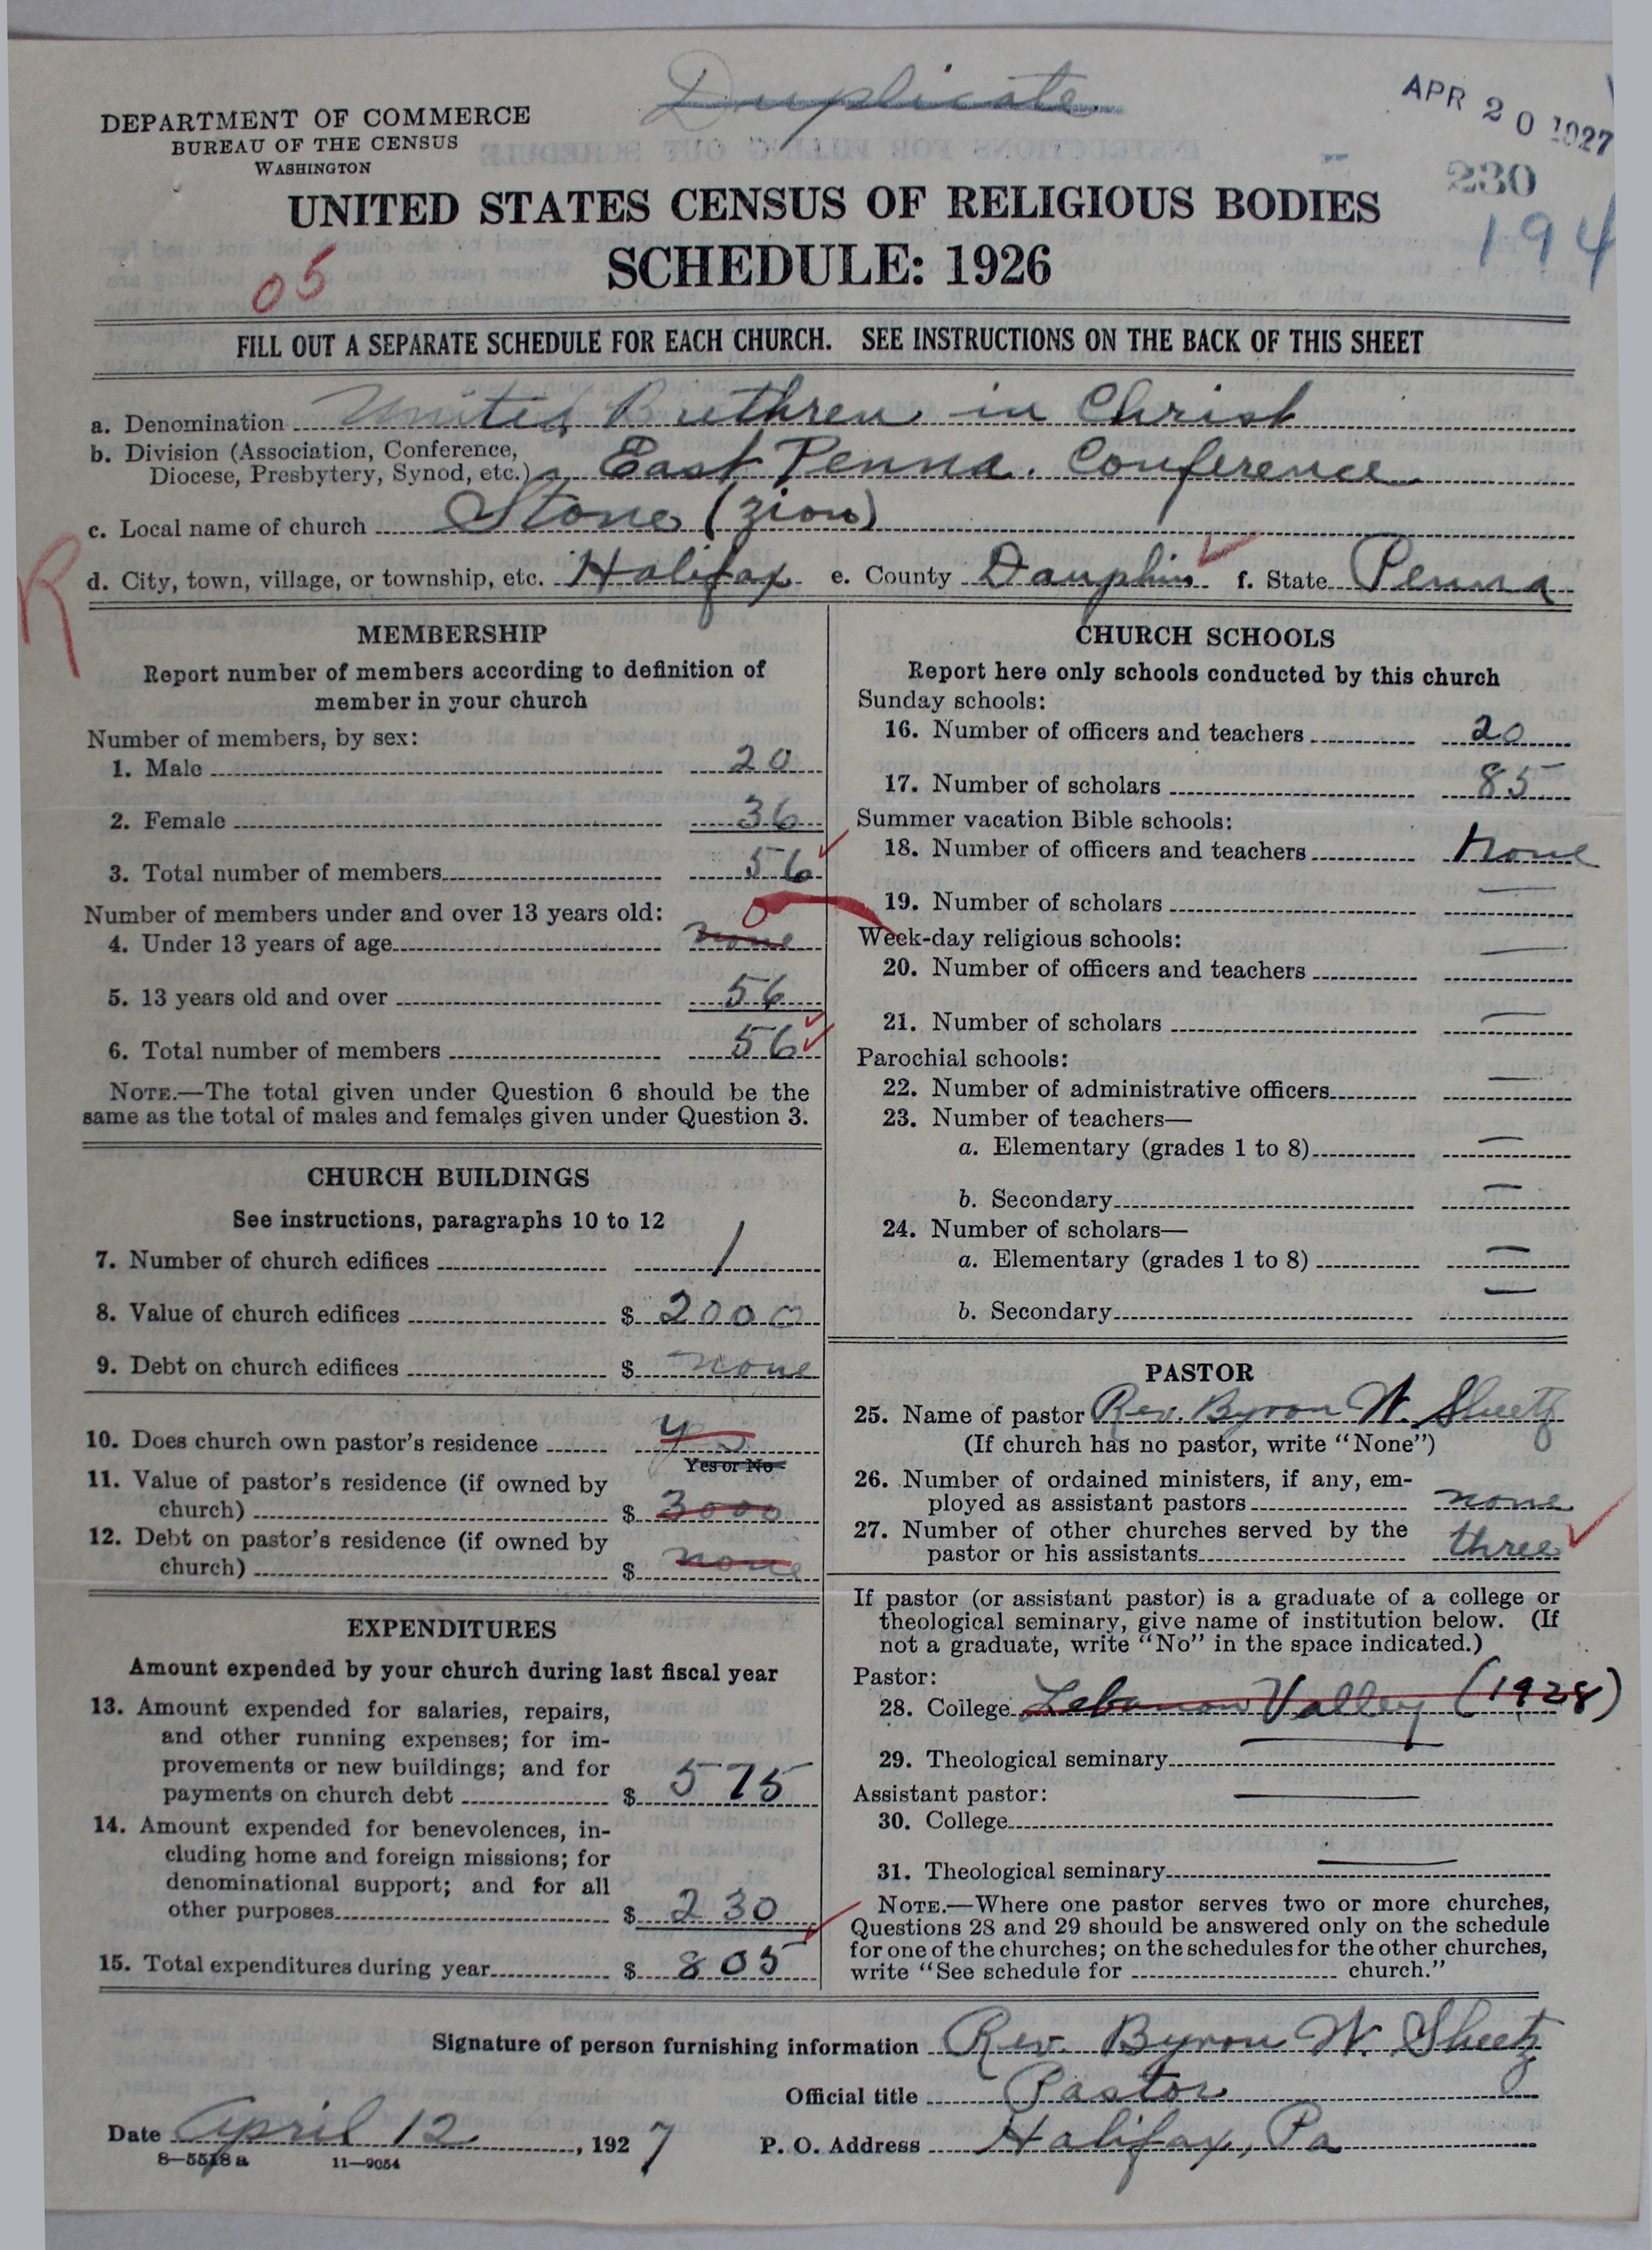 Duplicate
APR 20 1927
DEPARTMENT OF COMMERCE
BUREAU OF THE CENSUS
WASHINGTON
230
194
UNITED STATES CENSUS OF RELIGIOUS BODIES
SCHEDULE: 1926
05
FILL OUT A SEPARATE SCHEDULE FOR EACH CHURCH. SEE INSTRUCTIONS ON THE BACK OF THIS SHEET
a. Denomination United Brethren in Christ
b. Division (Association, Conference,
Diocese, Presbytery, Synod, etc.) East Penna. Conference
c. Local name of church Stone (Zion)
R
d. City, town, village, or township, etc. Halifax e. County Dauphin f. State Penna
MEMBERSHIP
Report number of members according to definition of
member in your church
Number of members, by sex:
1. Male 20
2. Female 36
3. Total number of members 56
Number of members under and over 13 years old:
0
4. Under 13 years of age none
5. 13 years old and over 56
6. Total number of members 56
NOTE.—The total given under Question 6 should be the
same as the total of males and females given under Question 3.
CHURCH BUILDINGS
See instructions, paragraphs 10 to 12
7. Number of church edifices 1
8. Value of church edifices $ 2000
9. Debt on church edifices $ none
10. Does church own pastor's residence yes
Yes or No
11. Value of pastor's residence (if owned by
church) $ 3000
12. Debt on pastor's residence (if owned by
church) $ none
EXPENDITURES
Amount expended by your church during last fiscal year
13. Amount expended for salaries, repairs,
and other running expenses; for im-
provements or new buildings; and for
payments on church debt $ 575
14. Amount expended for benevolences, in-
cluding home and foreign missions; for
denominational support; and for all
other purposes $ 230
15. Total expenditures during year $ 805
CHURCH SCHOOLS
Report here only schools conducted by this church
Sunday schools:
16. Number of officers and teachers 20
17. Number of scholars 85
Summer vacation Bible schools:
18. Number of officers and teachers none
19. Number of scholars —
Week-day religious schools:
20. Number of officers and teachers —
21. Number of scholars —
Parochial schools:
22. Number of administrative officers —
23. Number of teachers—
a. Elementary (grades 1 to 8) —
b. Secondary —
24. Number of scholars—
a. Elementary (grades 1 to 8) —
b. Secondary —
PASTOR
25. Name of pastor Rev. Byron W. Sheetz
(If church has no pastor, write "None")
26. Number of ordained ministers, if any, em-
ployed as assistant pastors none
27. Number of other churches served by the
pastor or his assistants three
If pastor (or assistant pastor) is a graduate of a college or
theological seminary, give name of institution below. (If
not a graduate, write "No" in the space indicated.)
Pastor:
28. College Lebanon Valley (1928)
29. Theological seminary —
Assistant pastor:
30. College —
31. Theological seminary —
NOTE.—Where one pastor serves two or more churches,
Questions 28 and 29 should be answered only on the schedule
for one of the churches; on the schedules for the other churches,
write "See schedule for church."
Signature of person furnishing information Rev. Byron W. Sheetz
Official title Pastor
Date April 12, 1927 P. O. Address Halifax, Pa
8—5518a 11—9054